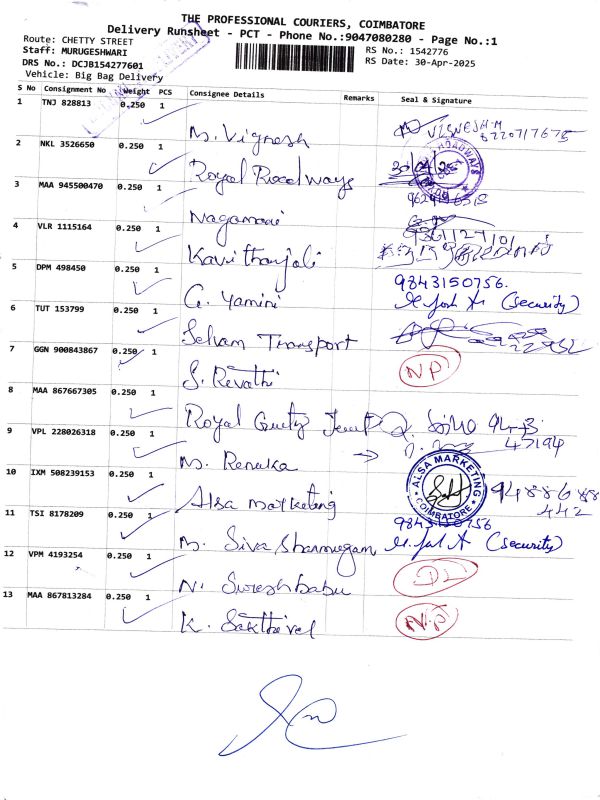 THE PROFESSIONAL COURIERS, COIMBATORE
Delivery Runsheet - PCT - Phone No.:9047080280 - Page No.:1
Route: CHETTY STREET
Staff: MURUGESHWARI
RS No.: 1542776
DRS No.: DCJB154277601
RS Date: 30-Apr-2025
Vehicle: Big Bag Delivery
S No Consignment No Weight PCS Consignee Details Remarks Seal & Signature
1 TNJ 828813 0.250 1
M. Vignesh VIGNESH.M
8220717675
2 NKL 3526650 0.250 1
Royal Roadways 30/04/25
3 MAA 945500470 0.250 1
Nagamani
4 VLR 1115164 0.250 1
Kavithanjali
5 DPM 498450 0.250 1 9843150756.
G. Yamini (Security)
6 TUT 153799 0.250 1
Selvam Transport
7 GGN 900843867 0.250 1
S. Revathi NP
8 MAA 867667305 0.250 1
Royal 943
9 VPL 228026318 0.250 1 47194
M. Renuka
10 IXM 508239153 0.250 1 ALSA MARKETING COIMBATORE 9488688
Alsa marketing 442
11 TSI 8178209 0.250 1 9843150756
M. Siva Shanmugam (Security)
12 VPM 4193254 0.250 1
N. Sureshbabu DL
13 MAA 867813284 0.250 1
K. Sakthivel NP